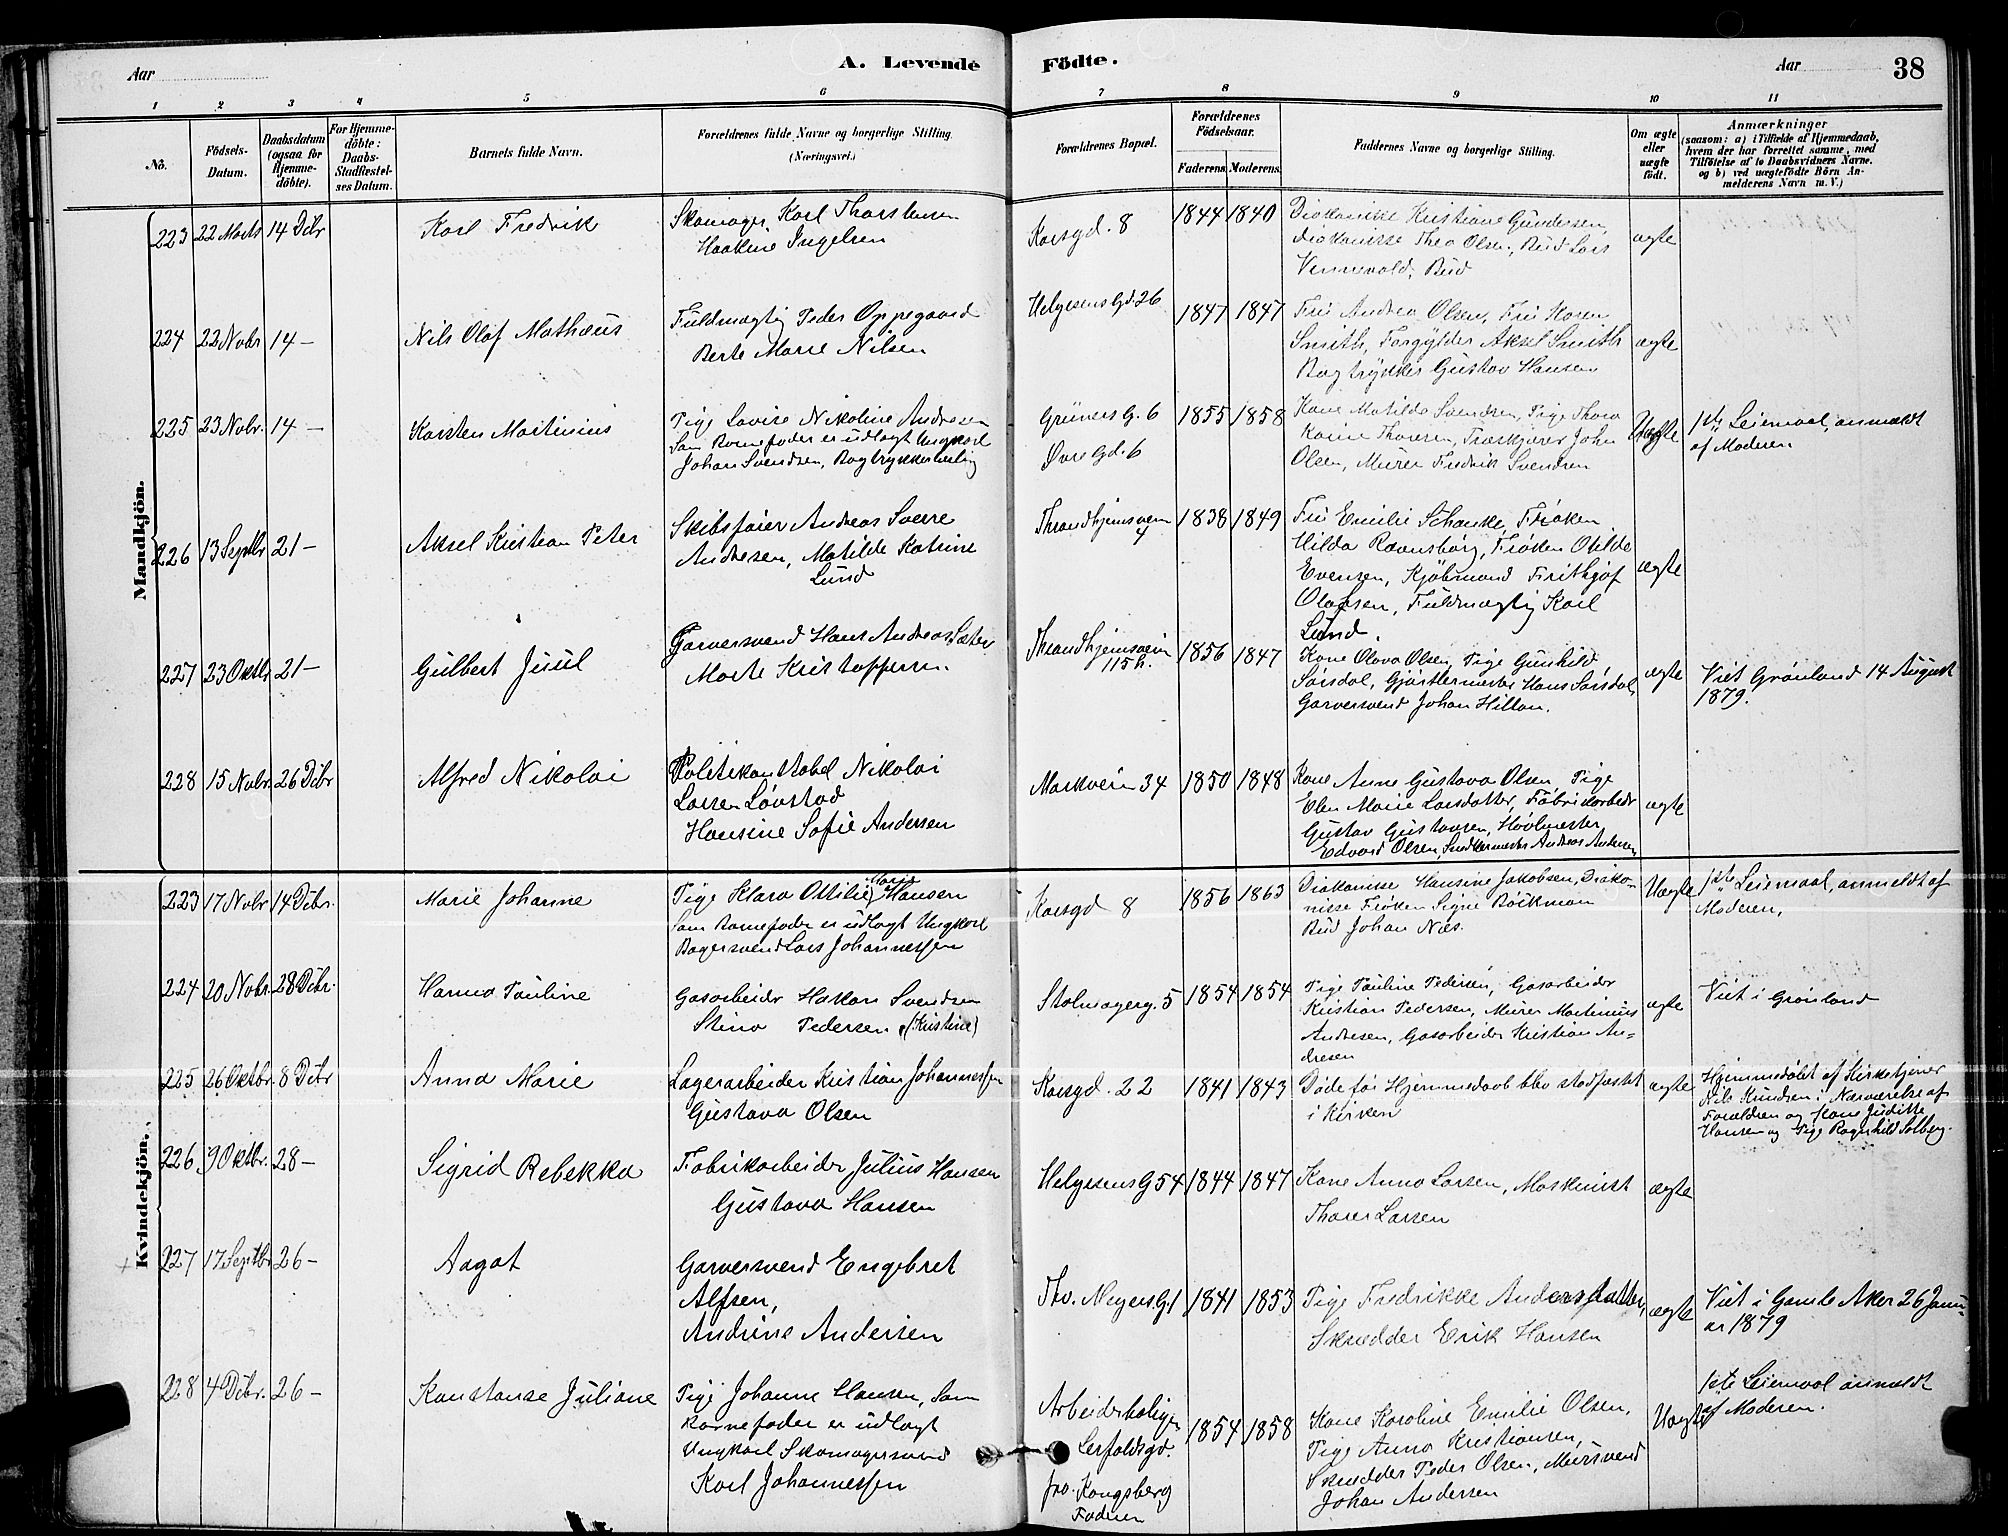 Aar
A. Levende Födte.
Aar
38
1 2 3 4 5 6 7 8 9 10 11
No.
Födsels-Datum.
Daabsdatum (ogsaa for Hjemme-döbte).
For Hjemme-döbte: Daabs-Stadfæstel-ses Datum.
Barnets fulde Navn.
Forældrenes fulde Navne og borgerlige Stilling. (Næringsvei.)
Forældrenes Bopæl.
Forældrenes Födselsaar.
Faderens. Moderens.
Faddernes Navne og borgerlige Stilling.
Om ægte eller uægte födt.
Anmærkninger
(saasom: a) i Tilfælde af Hjemmedaab,
hvem der har forrettet samme, med
Tilföielse af to Daabsvidners Navne.
og b) ved uægtefödte Börn An-
melderens Navn m. V.)
Mandkjön.
223 22 Marts 14 Dcbr Karl Fredrik
Skomager Karl Thorstensen
Haakine Ingelsen
Korsgd. 8 1844 1840
Diakonisse Kristiane Gundersen,
Diakonisse Thea Olsen, Bud Lars
Vennevold, Bud
ægte
224 22 Nobr 14 — Nils Olaf Mathæus
Fuldmægtig Peder Oppegaard
Berte Marie Nilsen
Helgesens Gd. 26 1847 1847
Fru Andrea Olsen, Fru Karen
Smith, Forgylder Aksel Smith
Bogtrykker Gustav Hansen
ægte
225 23 Nobr. 14 — Karsten Martinius
Pige Lovise Nikoline Andresen
Som Barnefader er udlagt Ungkarl
Johan Svendsen, Bogtrykkerlærling
Grüners G. 6
Øvre Gd. 6
1855 1858
Kone Matilda Svendsen, Pige Thora
Karine Thoresen, Træskjærer John
Olsen, Murer Fredrik Svendsen
Uægte
1ste Leiermaal, anmeldt
af Moderen
226 13 Septbr 21 — Aksel Kristian Peter
Skibsfører Andreas Sverre
Andresen, Matilde Katrine
Lund
Throndhjemsveien
4
1838 1849
Fru Emilie Schanke, Frøken
Hilda Ravnsborg, Frøken Otilde
Evensen, Kjøbmand Frithjof
Olafsen, Fuldmægtig Karl
Lund.
ægte
227 23 Oktbr 21 — Gulbert Juul
Garversvend Hans Andreas Sæter
Marte Kristoffersen.
Throndhjemsveien
115 b.
1856 1847
Kone Olava Olsen, Pige Gunhild
Sørsdal, Gjørtlermester Hans Sørsdal,
Garversvend Johan Hilton.
ægte
Viet Grønland 14 August
1879.
228 15 Nobr. 26 Dcbr Alfred Nikolai
Politikonstabel Nikolai
Larsen Løvstad
Hansine Sofie Andersen
Markveien 34 1850 1848
Kone Anne Gustava Olsen, Pige
Elen Marie Larsdatter, Fabrikarbeider
Gustav Gustavsen, Høvlmester
Edvard Olsen, Snedkermester Andreas Andersen
ægte
Kvindekjön.
223 17 Nobr 14 Dcbr. Marie Johanne
Pige Klara Ottilie Marie Hansen
Som Barnefader er udlagt Ungkarl
Bagersvend Lars Johannessen
Korsgd 8 1856 1863
Diakonisse Hansine Jakobsen, Diako-
nisse Frøken Signe Bøckman
Bud Johan Næs.
Uægte
1ste Leiermaal, anmeldt af
Moderen.
224 20 Nobr. 28 Dcbr. Hanna Pauline
Gasarbeider Haakon Svendsen
Stina Pedersen (Kristine)
Stolmagerg. 5 1854 1854
Pige Pauline Pedersen, Gasarbeider
Kristian Pedersen, Murer Martinius
Andresen, Gasarbeider Kristian An-
dresen
ægte
Viet i Grønland
225 26 Oktbr. 8 Dcbr Anna Marie
Lagerarbeider Kristian Johannessen
Gustava Olsen
Korsgd. 22 1841 1843
Døde før Hjemmedaab blev stadfæstet
i Kirken
ægte
Hjemmedøbt af Kirketjener
Nils Knudsen i Nærværelse af
Forældren og Kone Juditte
Hansen og Pige Ragnhild Solberg.
226 9 Oktbr. 28 — Sigrid Rebekka
Fabrikarbeider Julius Hansen
Gustava Hansen
Helgesens G 54 1844 1847
Kone Anna Larsen, Maskinist
Thorer Larsen
ægte
227 17 Septbr 26 — Aagot
Garversvend Engebret
Alfsen,
Andrine Andersen
Thv. Meyers G. 1 1841 1853
Pige Fredrikke Andersdatter,
Skrædder Erik Hansen
ægte
Viet i Gamle Aker 26 Janu-
ar 1879
228 4 Dcbr. 26 — Konstanse Juliane
Pige Johanne Hansen, Som
Barnefader er udlagt
Ungkarl Skomagersvend
Karl Johannessen
Arbeiderboliger
Lerfaldsgd.
fra Kongsberg
Faderen
1854 1858
Kone Karoline Emilie Olsen,
Pige Anna Kristiansen,
Skrædder Peder Olsen, Mursvend
Johan Andersen
Uægte
1ste Leiermaal anmeldt
af Moderen.